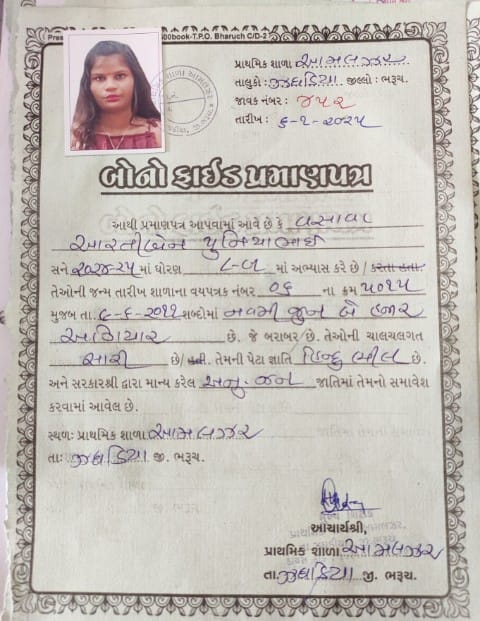 500book-T.P.O. Bharuch C/D-2
પ્રાથમિક શાળા આમલઝર
તાલુકો: ઝઘડિયા જીલ્લો : ભરૂચ.
જાવક નંબર : ૪૫૨
તારીખ : ૬-૨-૨૦૨૫
બોનોફાઈડ પ્રમાણપત્ર
આથી પ્રમાણપત્ર આપવામાં આવે છે કે વસાવા
આરતીબેન પુનિયાભાઈ
સને ૨૦૨૪-૨૫ માં ધોરણ ૮-બ માં અભ્યાસ કરે છે / કરતા હતા.
તેઓની જન્મ તારીખ શાળાના વયપત્રક નંબર ૦૬ ના ક્રમ ૫૦૧૫
મુજબ તા. ૯-૬-૨૦૧૧ શબ્દોમાં નવમી જુન બે હજાર
અગિયાર છે. જે બરાબર છે. તેઓની ચાલચલગત
સારી છે/ હતી. તેમની પેટા જ્ઞાતિ હિન્દુ ભીલ છે.
અને સરકારશ્રી દ્વારા માન્ય કરેલ અનુ.જન જાતિમાં તેમનો સમાવેશ
કરવામાં આવેલ છે.
સ્થળ: પ્રાથમિક શાળા આમલઝર
તા: ઝઘડિયા જી. ભરૂચ.
આચાર્યશ્રી,
પ્રાથમિક શાળા આમલઝર
તા. ઝઘડિયા જી. ભરૂચ.